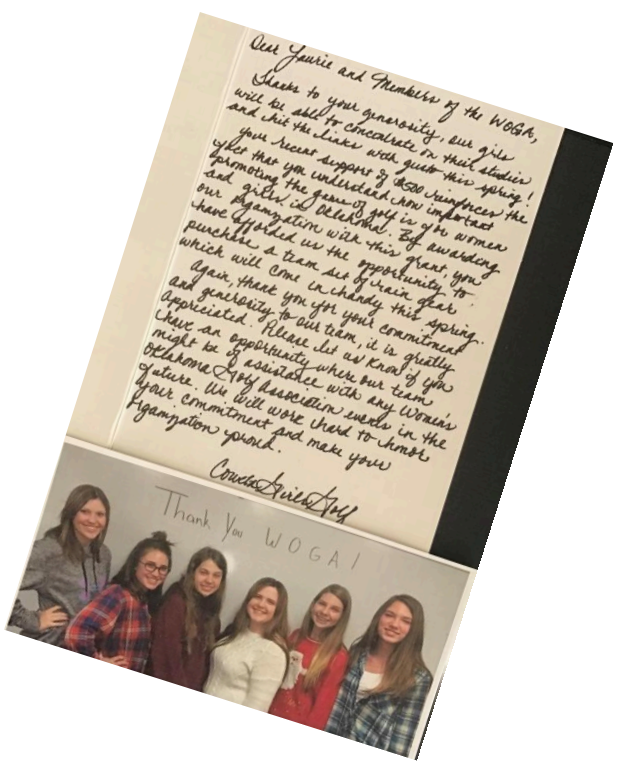 Dear Laurie and Members of the WOGA,
Thanks to your generosity, our girls
will be able to concentrate on their studies
and hit the links with gusto this spring!
Your recent support of $500 reinforces the
fact that you understand how important
promoting the game of golf is for women
and girls in Oklahoma. By awarding
our organization with this grant, you
have afforded us the opportunity to
purchase a team set of rain gear
which will come in handy this spring.
Again, thank you for your commitment
and generosity to our team, it is greatly
appreciated. Please let us know if you
have an opportunity where our team
might be of assistance with any Women's
Oklahoma Golf Association events in the
future. We will work hard to honor
your commitment and make your
organization proud.
Coweta Girls Golf
Thank You WOGA!